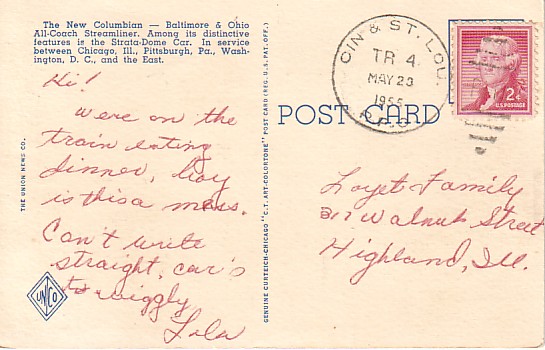 The New Columbian — Baltimore & Ohio
All-Coach Streamliner. Among its distinctive
features is the Strata-Dome Car. In service
between Chicago, Ill., Pittsburgh, Pa., Wash-
ington, D. C., and the East.
Hi!
Were on the
train eating
dinner, boy
is this a mess.
Can't write
straight, car's
to wiggly
Lola
THE UNION NEWS CO.
UNCO
GENUINE CURTEICH-CHICAGO "C.T. ART-COLORTONE" POST CARD (REG. U.S. PAT. OFF.)
POST CARD
CIN & ST. LOU.
TR 4
MAY 23
1955
R.P.O.
2¢
U.S. POSTAGE
Loyet Family
317 Walnut Street
Highland, Ill.